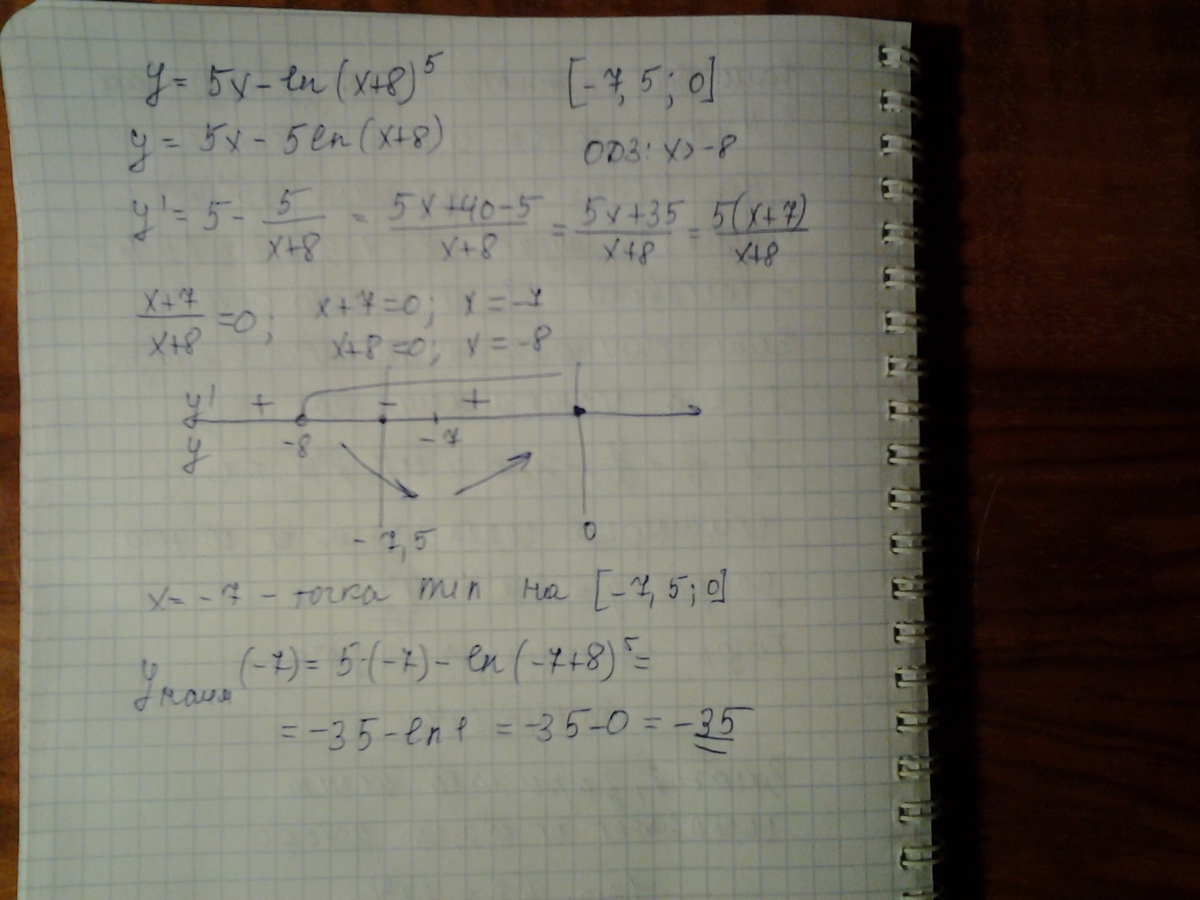 y = 5x - ln(x+8)^5 [-7,5; 0]
y = 5x - 5ln(x+8) ОДЗ: x>-8
y' = 5 - 5/(x+8) = (5x+40-5)/(x+8) = (5x+35)/(x+8) = 5(x+7)/(x+8)
(x+7)/(x+8) = 0; x+7=0; x=-7
x+8=0; x=-8
y' + - +
y -8 -7
-7,5 0
x=-7 - точка min на [-7,5; 0]
yнаим(-7) = 5·(-7) - ln(-7+8)^5 =
= -35 - ln1 = -35-0 = -35